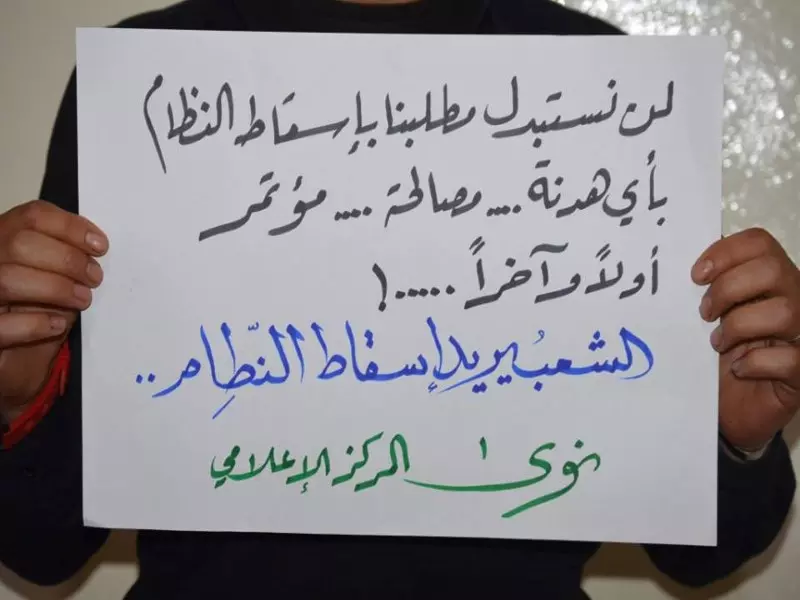 لن نستبدل مطلبنا بإسقاط النظام
بأي هدنة .... مصالحة .... مؤتمر
أولاً وآخراً .....!
الشعبُ يريد إسقاط النّظِام ..
نوى المركز الإعلامي